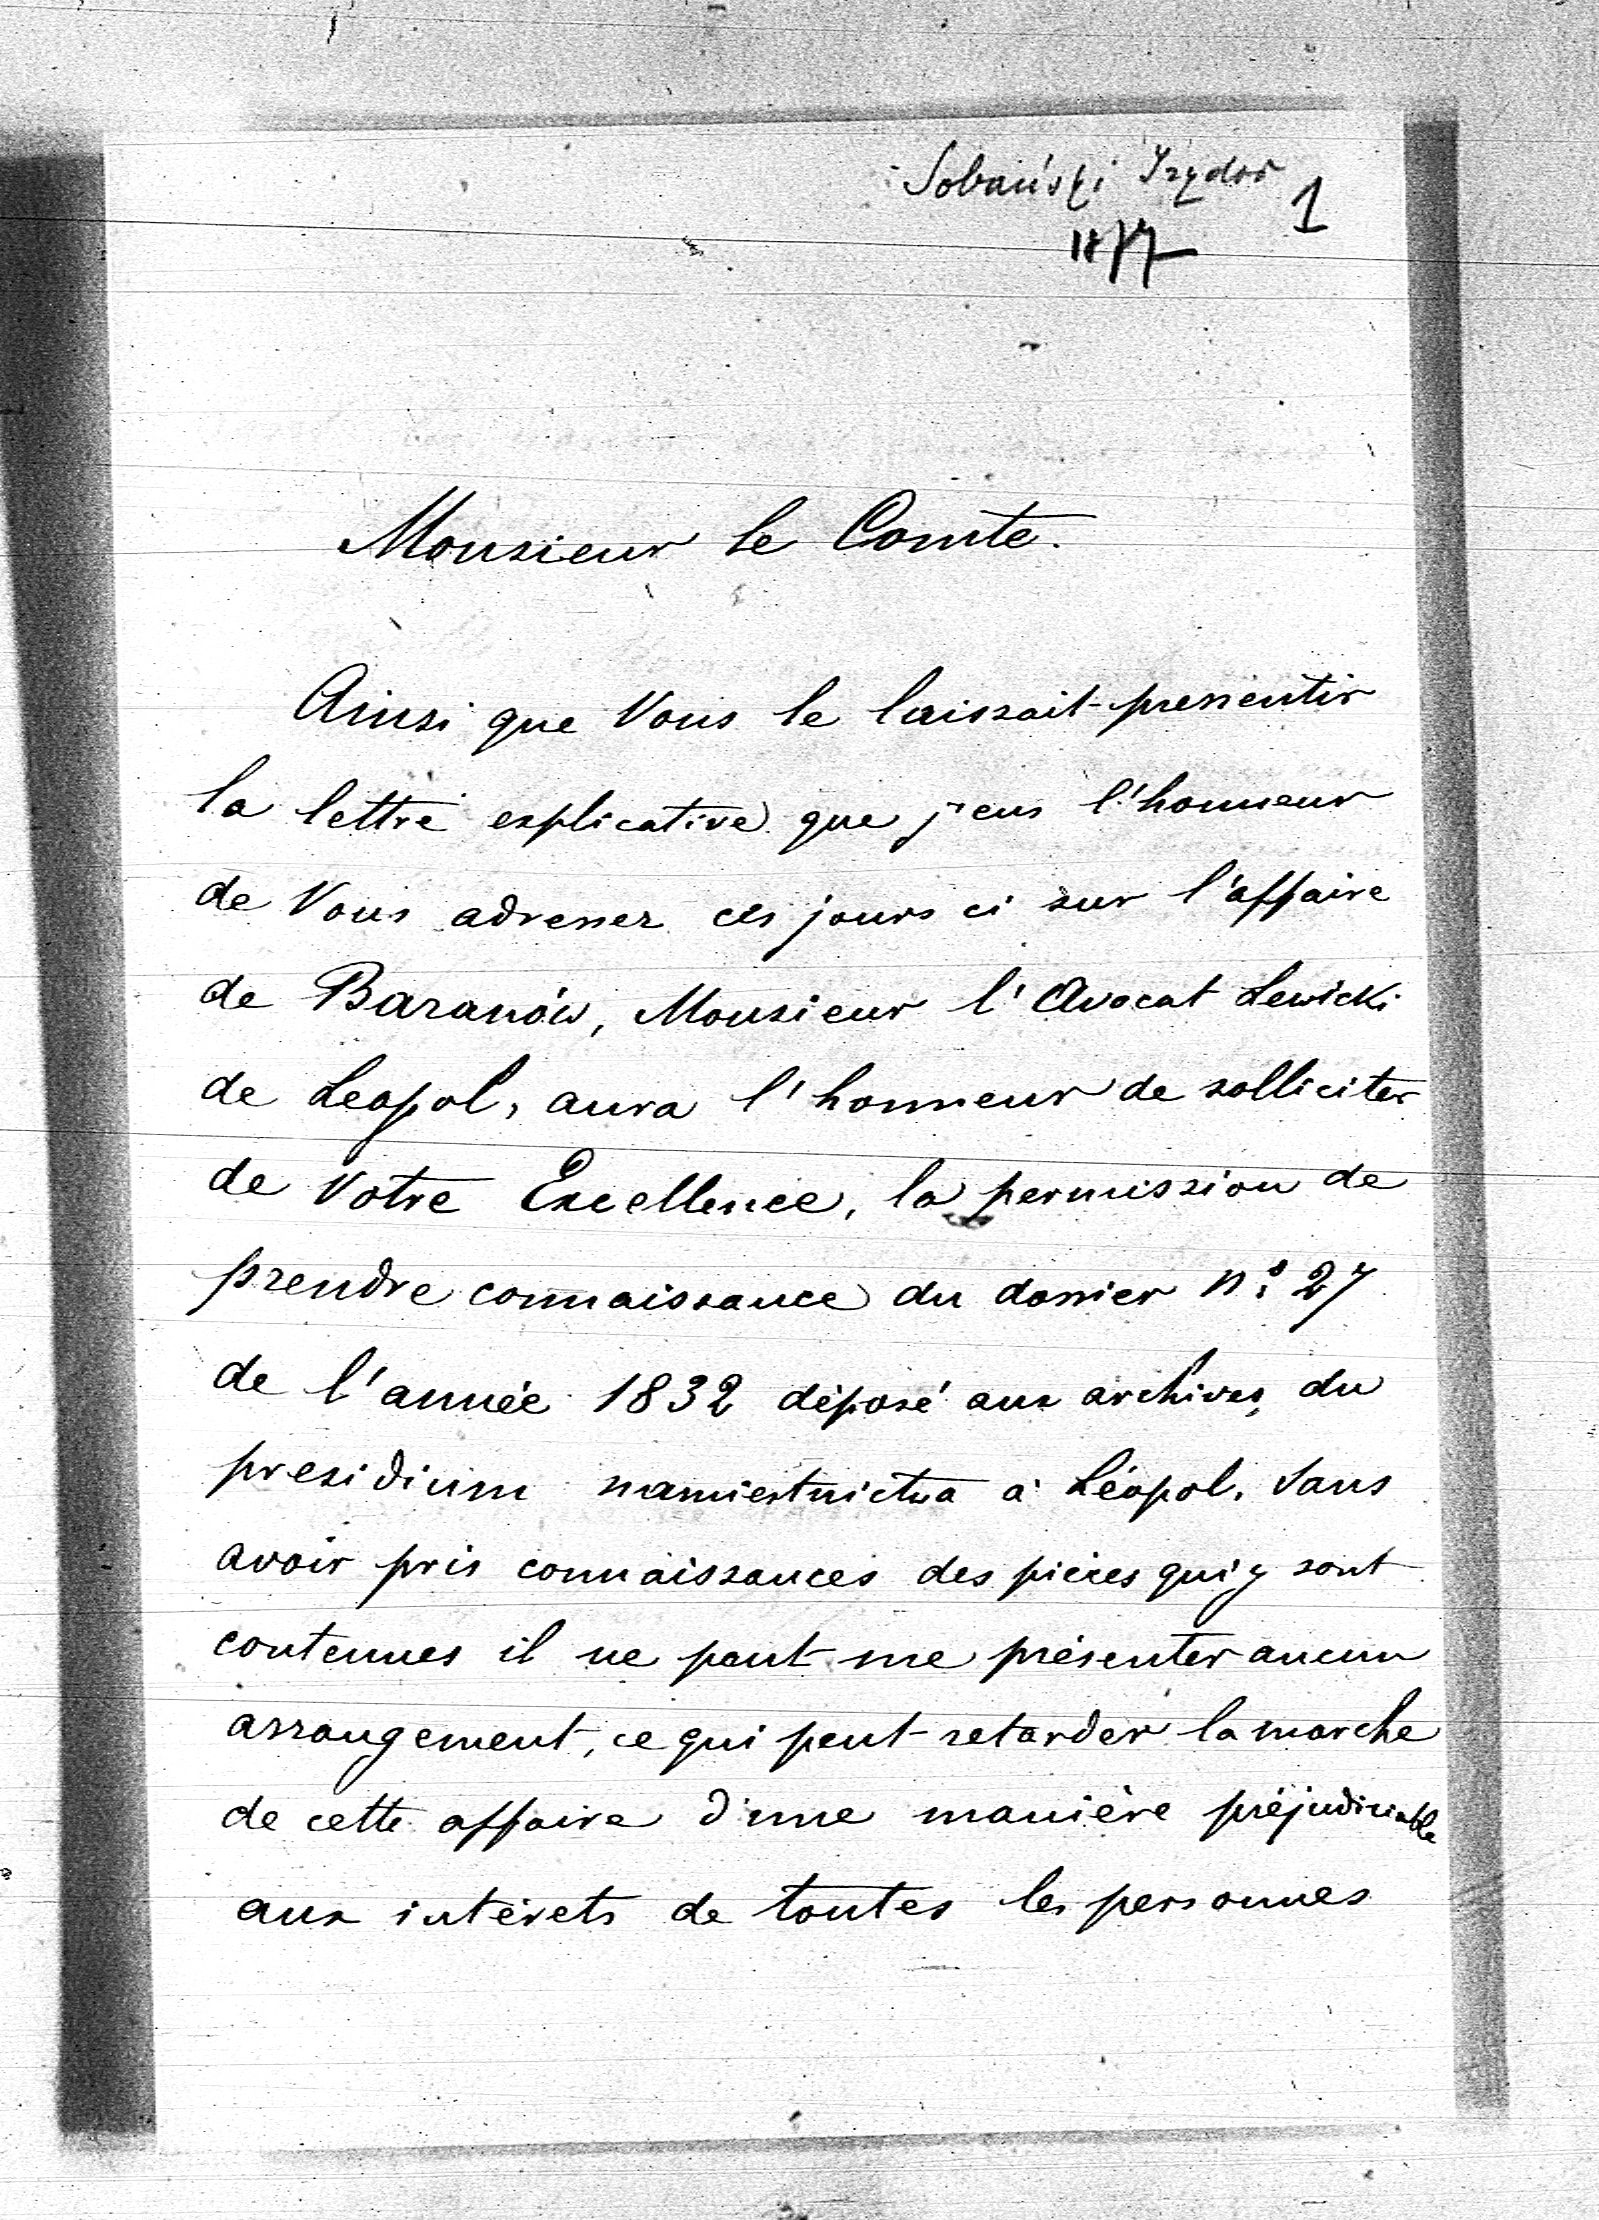 Sobański Izydor 1
1877
Monsieur le Comte.
Ainsi que Vous le laissait pressentir
la lettre explicative que j'eus l'honneur
de Vous adresser ces jours ci sur l'affaire
de Baranów, Monsieur l'Avocat Lewicki
de Leopol, aura l'honneur de solliciter
de Votre Excellence, la permission de
prendre connaissance du dossier No. 27
de l'année 1832 déposé aux archives du
presidium namiestnictwa à Léopol. Sans
avoir pris connaissances des pièces qui y sont
contenues il ne peut me présenter aucun
arrangement, ce qui peut retarder la marche
de cette affaire d'une manière préjudiciable
aux intérets de toutes les personnes